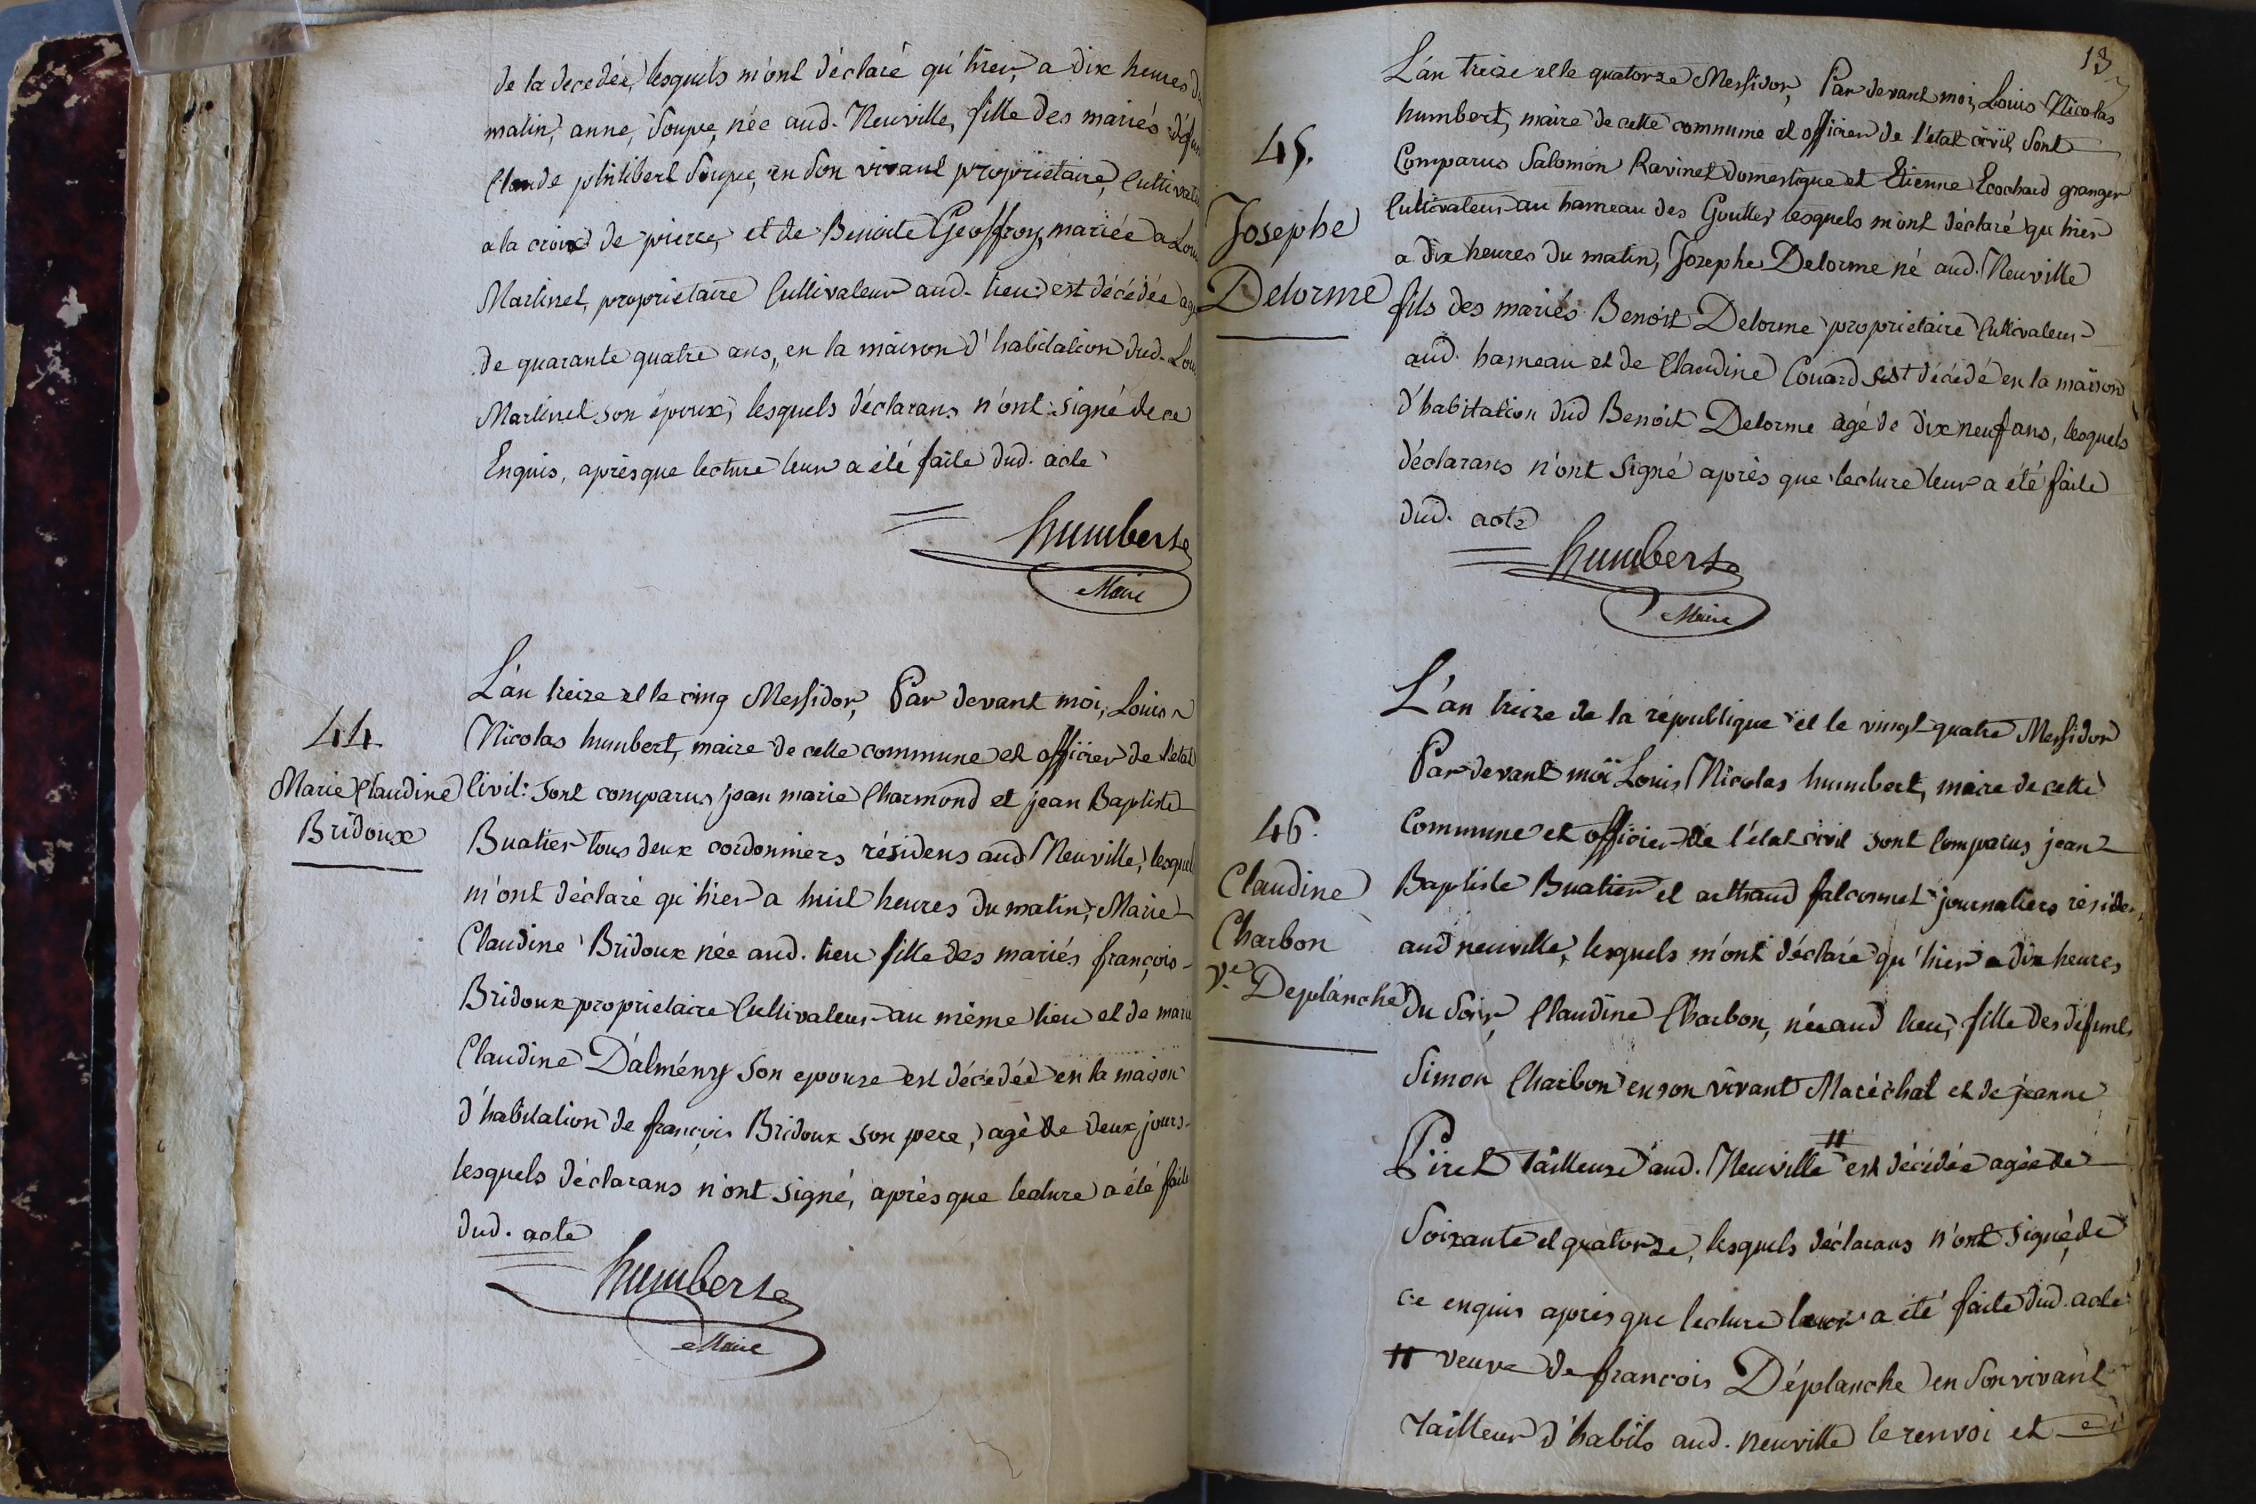 de la decedée, lesquels m'ont déclaré qu'hier, a dix heures du
matin, anne, Soupe, née aud. Neuville, fille des mariés défun
Claude philibert Soupe, en son vivant propriétaire, Cultivate
a la croix de pierre, et de Benoite Geoffroy, mariée a Lou
Martinet, propriétaire Cultivateur aud. lieu, est décédée agé
de quarante quatre ans, en la maison d'habitation dud. Lou
Martinet son époux, lesquels déclarans n'ont signé de ce
Enquis, après que lecture leur a été faite dud. acte
humbert
Maire
44.
Marie Claudine
Bridoux
L'an treize et le cinq Messidor, Par devant moi, Louis
Nicolas humbert, maire de cette commune et officier de l'etat
Civil: sont comparus jean marie Charmond et jean Baptiste
Buatier tous deux cordonniers résidens aud Neuville, lesquel
m'ont déclaré qu'hier a huit heures du matin, Marie
Claudine Bridoux née aud. lieu fille des mariés françois
Bridoux propriétaire Cultivateur au même lieu et de marie
Claudine Dalmény son epouse est décédée en la maison
d'habitation de françois Bridoux son pere, agé de deux jours
lesquels déclarans n'ont signé, après que lecture a été faite
dud. acte
humbert
Maire
13
45.
Josephe
Delorme
L'an treize et le quatorze Messidor, Par devant moi, Louis Nicolas
humbert, maire de cette commune et officier de l'etat civil, sont
Comparus Salomon Ravinet domestique et Etienne Ecochard granger
Cultivateur au hameau des Gouttes lesquels m'ont déclaré qu'hier
a dix heures du matin, Josephe Delorme né aud. Neuville
fils des mariés Benoit Delorme propriétaire Cultivateur
aud. hameau et de Claudine Couard est décédé en la maison
d'habitation dud Benoit Delorme agé de dix neuf ans, lesquels
déclarans n'ont signé après que lecture leur a été faite
dud. acte
humbert
Maire
46.
Claudine
Charbon
Ve. Deplanche
L'an treize de la république et le vingt quatre Messidor
Par devant moi Louis Nicolas humbert, maire de cette
Commune et officier de l'état civil sont Comparus jean
Baptiste Buatier et arthaud falconnet journaliers résiden
aud neuville, lesquels m'ont déclaré qu'hier a dix heures
du soir, Claudine Charbon, née aud lieu, fille des défunts
Simon Charbon en son vivant Maréchal et de jeanne
Piret tailleuse aud. Neuville # est décédée agée de
Soixante et quatorze, lesquels déclarans n'ont signé, de
ce enquis après que lecture leur a été faite dud. acte
# veuve de françois Déplanche en son vivant
Tailleur d'habits aud. neuville le renvoi et